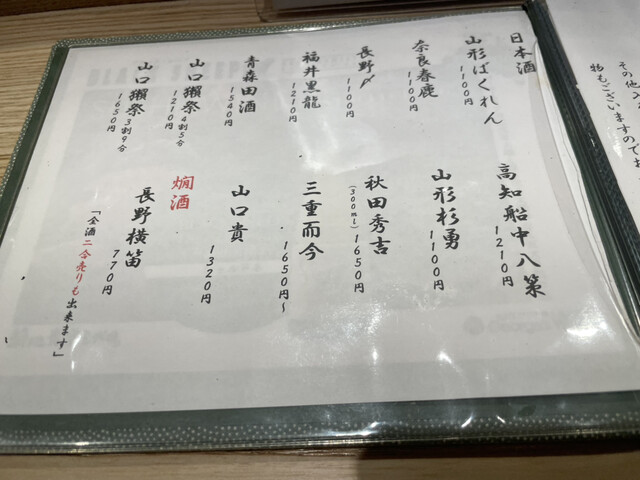 日本酒
山形ばくれん
1100円
奈良春鹿
1100円
長野〆
1100円
福井黒龍
1210円
青森田酒
1540円
山口獺祭 4割5分
1210円
山口獺祭 3割9分
1650円
高知船中八策
1210円
山形杉勇
1100円
秋田秀吉
(300ml) 1650円
三重而今
1650円~
山口貴
1320円
燗酒
長野横笛
770円
「全酒二合売りも出来ます」
その他入
物もございますのでお